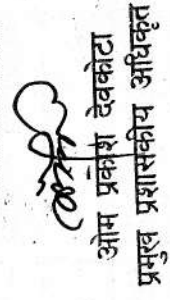 ओम प्रकाश देवकोटा
प्रमुख प्रशासकीय अधिकृत